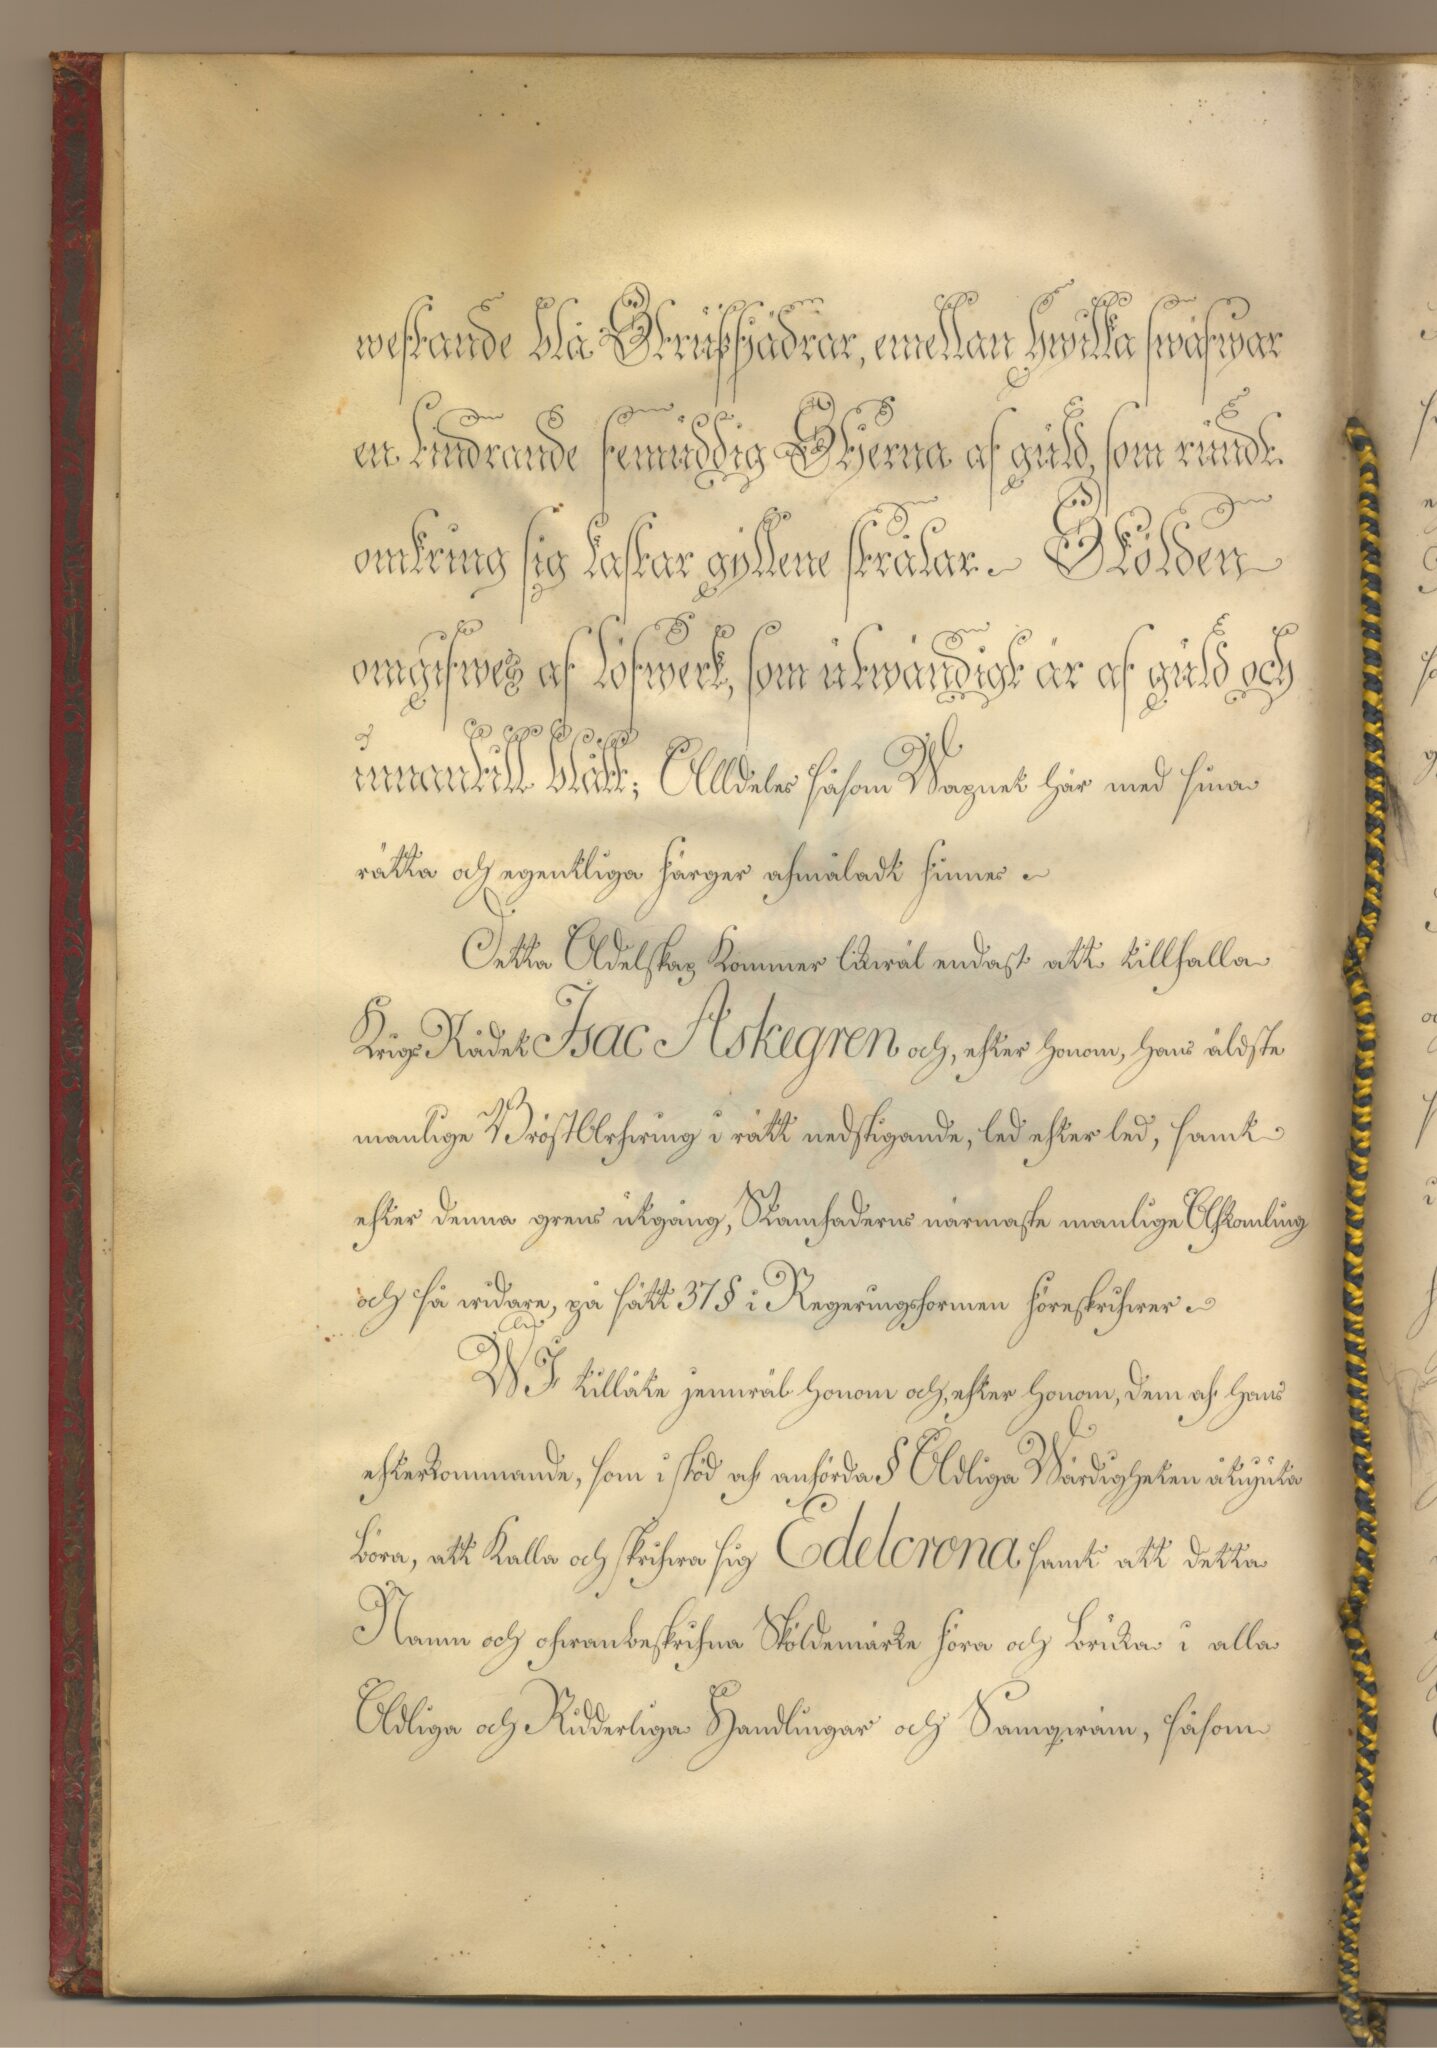 westande blå Strussfjädrar, emellan hwilka swäfwar
en tindrande femuddig Stjerna af guld, som rundt
omkring sig kastar gyllene strålar. Skölden
omgifwes af löfwerk, som utwändigt är af guld och
innantill blått; Alldeles såsom Wapnet här med sina
rätta och egentliga färger afmåladt finnes.
Detta Adelskap kommer likwäl endast att tillfalla
Krigs Rådet Isac Askegren och, efter honom, hans äldste
manlige BröstArfwing i rätt nedstigande, led efter led, samt
efter denna grens utgång, Stamfaderns närmaste manlige Afkomling
och så widare, på sätt 37 § i Regeringsformen föreskrifwer.
WI tillåte jemwäl honom och, efter honom, dem af hans
efterkommande, som i stöd af anförda § Adliga Wärdigheten åtnjuta
böra, att kalla och skrifwa sig Edelcrona samt att detta
Namn och ofwanbeskrifna Sköldemärke föra och bruka i alla
Adliga och Ridderliga Handlingar och Samqwäm, såsom